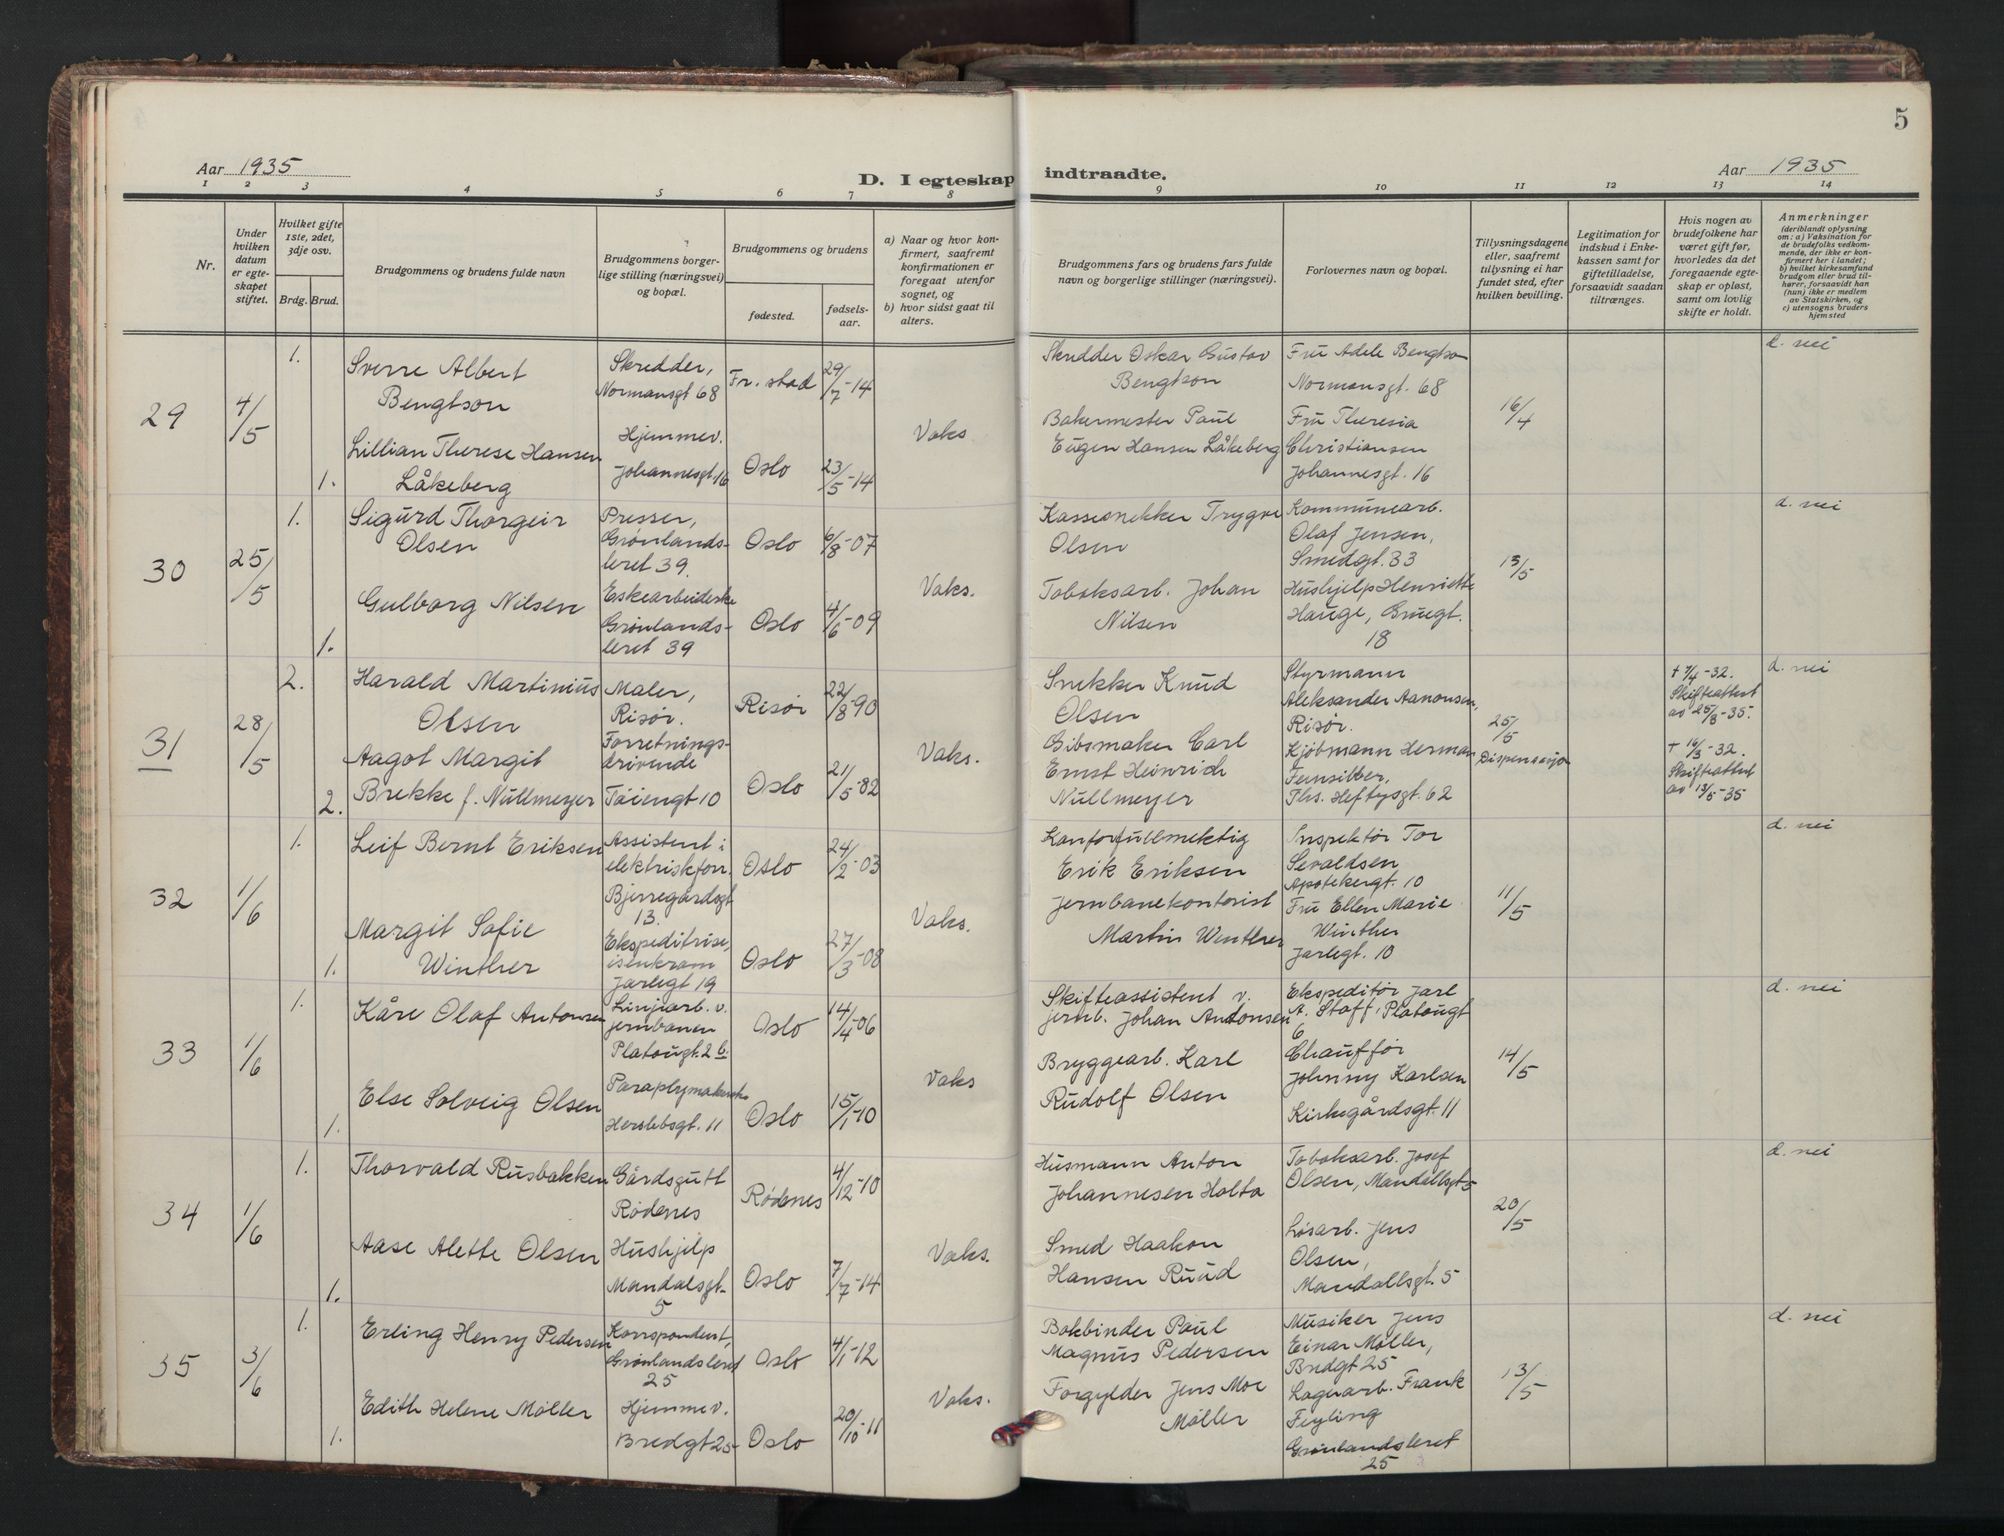 5
Aar 1935
D. I egteskap indtraadte.
Aar 1935
1 2 3 4 5 6 7 8 9 10 11 12 13 14
Nr.
Under hvilken datum er egteskapet stiftet.
Hvilket gifte 1ste, 2det, 3dje osv.
Brdg. Brud.
Brudgommens og brudens fulde navn
Brudgommens borgerlige stilling (næringsvei) og bopæl.
Brudgommens og brudens
fødested.
fødselsaar.
a) Naar og hvor konfirmert, saafremt konfirmationen er foregaat utenfor sognet, og
b) hvor sidst gaat til alters.
Brudgommens fars og brudens fars fulde navn og borgerlige stillinger (næringsvei).
Forlovernes navn og bopæl.
Tillysningsdagene eller, saafremt tillysning ei har fundet sted, efter hvilken bevilling.
Legitimation for indskud i Enkekassen samt for giftetilladelse, forsaavidt saadan tiltrænges.
Hvis nogen av brudefolkene har været gift før, hvorledes da det foregaaende egteskap er opløst, samt om lovlig skifte er holdt.
Anmerkninger (deriblandt oplysning om: a) Vaksination for de brudefolks vedkommende, der ikke er konfirmert her i landet; b) hvilket kirkesamfund brudgom eller brud tilhører, forsaavidt han (hun) ikke er medlem av Statskirken, og c) utensogns bruders hjemsted
29 4/5
1. Sverre Albert Bengtson
Skredder, Normansgt 68
Fr. stad 29/7-14
Skredder Oskar Gustav Bengtson
Fru Adele Bengtson Normansgt. 68
d. nei
1. Lillian Therese Hansen Låkeberg
Hjemmev. Johannesgt. 16
Oslo 23/5-14
Vaks
Bakermester Paul Eugen Hansen Låkeberg
Fru Theresia Christiansen Johannesgt. 16
16/4
30 25/5
1. Sigurd Thorgeir Olsen
Presser, Grønlandsleret 39.
Oslo 6/8-07
Kassesnekker Trygve Olsen
Kommunearb. Olaf Jensen, Smedgt. 33
13/5
d. nei
1. Gulborg Nilsen
Eskearbeiderske Grønlandsleret 39
Oslo 4/6-09
Vaks.
Tobaksarb. Johan Nilsen
Hushjelp Henriette Hauge, Gruegt. 18
31 28/5
2. Harald Martinius Olsen
Maler, Risør.
Risør 22/8-90
Snekker Knud Olsen
Styrmann Aleksander Aanonsen, Risør.
25/5 Dispensasjon
+ 7/4-32. Skifteattest av 25/3-35.
d. nei
2. Aagot Margit Brekke f. Nullmeyer
Forretningsdrivende Tøiengt 10
Oslo 21/5-82
Vaks.
Gibsmaker Carl Ernst Heinrich Nullmeyer
Kjøbmann Herman Fernsilber, Ths. Heftysgt. 62
+ 16/3-32. Skifteattest av 13/5-35
32 1/6
1. Leif Bernt Eriksen
Assistent i elektriskforr. Bjerregårdsgt 13.
Oslo 24/2-03
Kontorfullmektig Erik Eriksen
Inspektør Tor Sevaldsen Apotekergt. 10
11/5
d. nei
1. Margit Sofie Winther
Ekspeditrise, isenkram Jarlegt 19
Oslo 27/3-08
Vaks.
Jernbanekontorist Martin Winther
Fru Ellen Marie Winther Jarlegt. 10
33 1/6
1. Kåre Olaf Antonsen
Linjearb. v. jernbanen Platougt. 2 b.
Oslo 14/4-06
Skifteassistent v. jernb. Johan Antonsen
Ekspeditør Jarl A. Staff, Platougt 6
14/5
d. nei
1. Else Solveig Olsen
Paraplymakerske Herslebsgt. 11
Oslo 15/1-10
Vaks
Bryggearb. Karl Rudolf Olsen
Chauffør Johnny Karlsen Kirkegårdsgt. 11
34 1/6
1. Thorvald Rusbakken
Gårdsgutt Rødenes
Rødenes 4/12-10
Husmann Anton Johannesen Holta
Tobaksarb. Josef Olsen, Mandallsgt 5
20/5
d. nei
1. Aase Alette Olsen
Hushjelp Mandalsgt. 5
Oslo 7/7-14
Vaks.
Smed Haakon Hansen Ruud
Løsarb. Jens Olsen, Mandallsgt. 5
35 3/6
1. Erling Henry Pedersen
Korrspondent, Grønlandsleret 25
Oslo 4/1-12
Bokbinder Paul Magnus Pedersen
Musiker Jens Einar Møller, Bredgt 25
13/5
d. nei
1. Edith Helene Møller
Hjemmev. Bredgt 25
Oslo 20/10-11
Vaks.
Forgylder Jens Moe Møller
Lagerarb. Frank Feyling Grønlandsleret 25